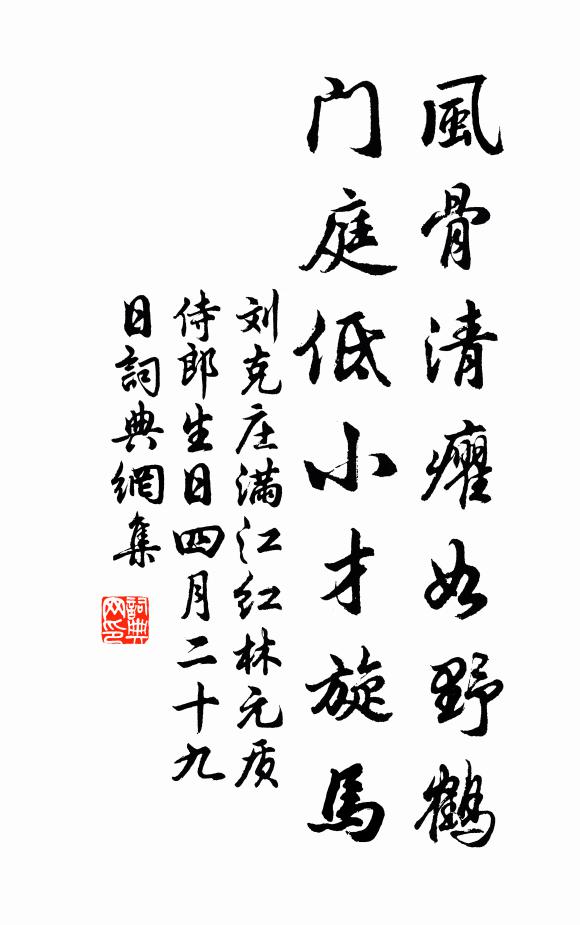 風骨清癯如野鶴
门庭低小才旋馬
刘克庄满江红林元质
侍郎生日四月二十九
日詞典網集
詞典
网印